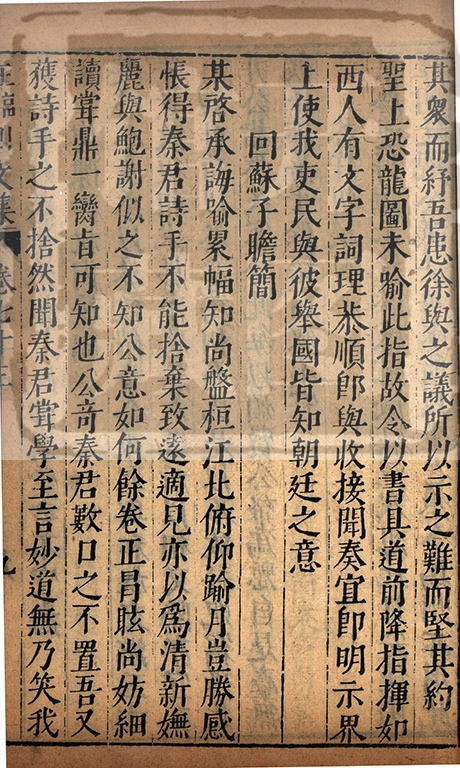 其衆而紓吾患徐與之議所以示之難而堅其約
聖上恐龍圖未喻此指故令以書具道前降指揮如
西人有文字詞理恭順卽與收接聞奏宜卽明示界
上使我吏民與彼舉國皆知朝廷之意
回蘇子瞻簡
某啓承誨喻累幅知尚盤桓江北俯仰踰月豈勝感
悵得秦君詩手不能捨棄致遠適見亦以爲清新嫵
麗與鮑謝似之不知公意如何餘卷正昌眩尚妨細
讀嘗鼎一臠旨可知也公竒秦君數口之不置吾又
獲詩手之不捨然聞秦君嘗學至言妙道無乃笑我
臨川文集 卷七十三
九